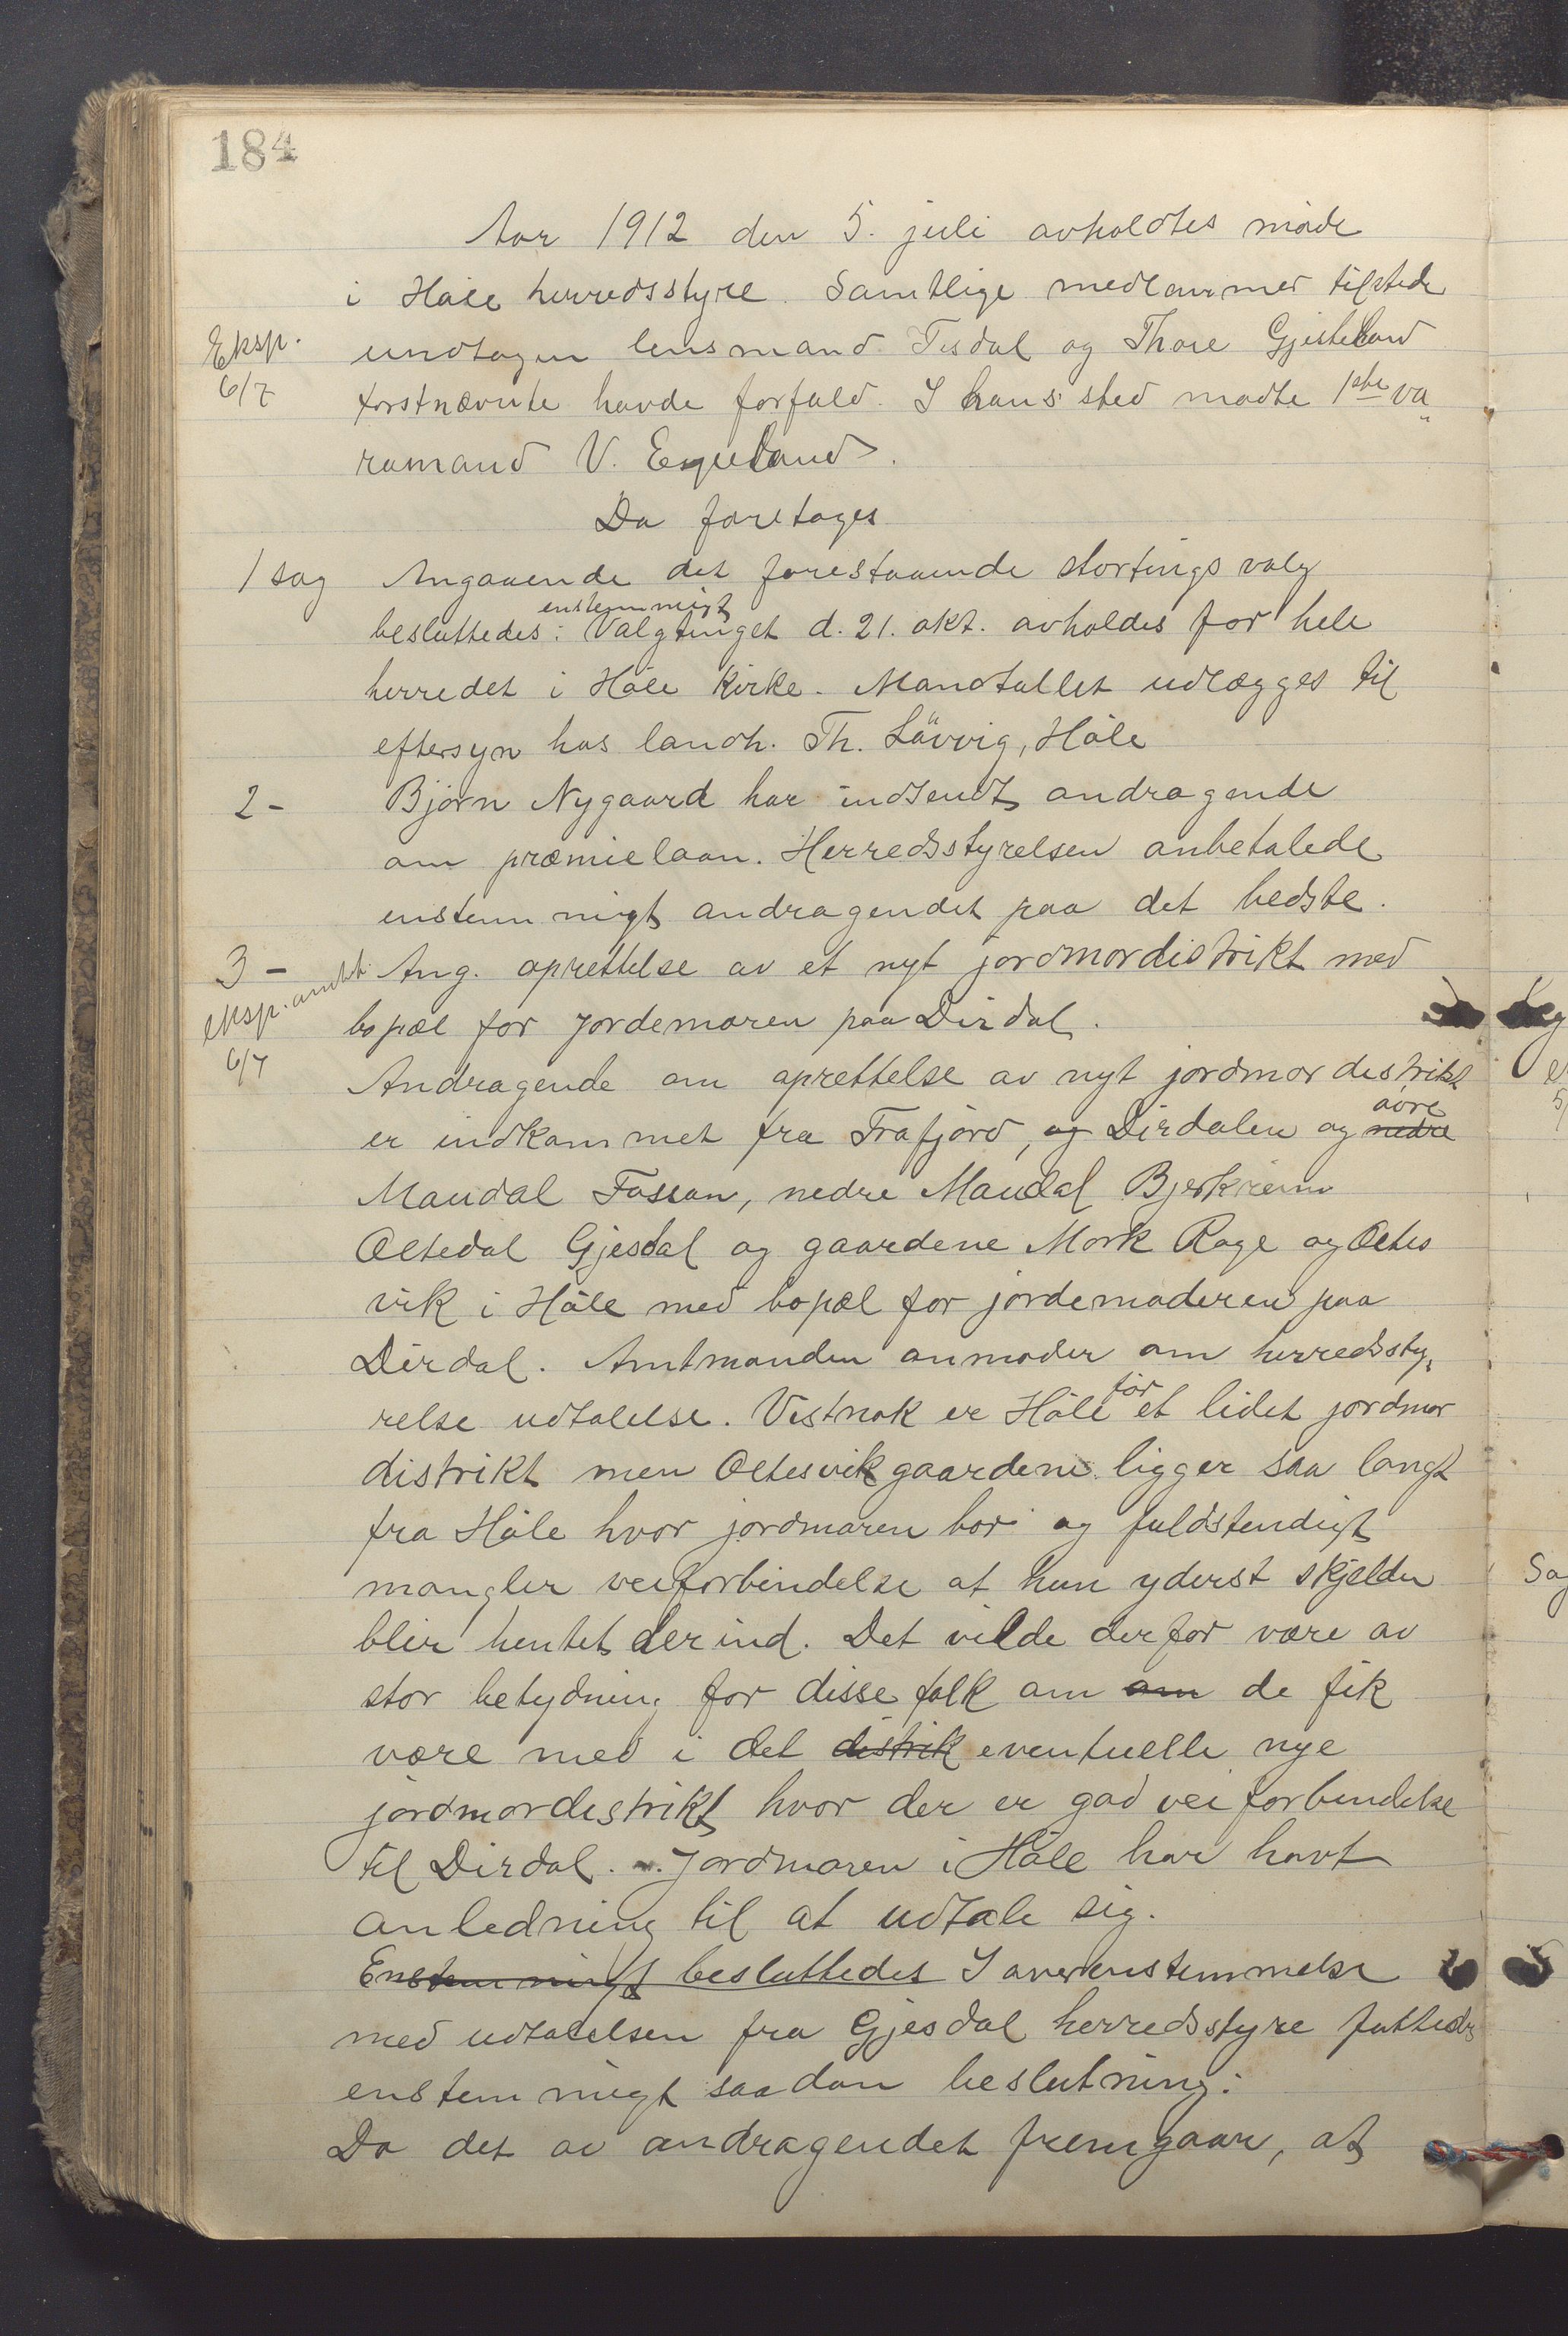 184
Aar 1912 den 5. juli avholdtes møde
i Høle herredsstyre. Samtlige medlemmer tilstede
Eksp. undtagen lensmand Tisdal og Thore Gjesteland
6/7 forstnævnte havde forfald. I hans sted mødte 1ste va„
ramand V. Eguland.
Da foretoges
1 sag Angaaende det forestaaende stortingsvalg
enstemmigt
besluttedes: Valgtinget d. 21. okt. avholdes for hele
herredet i Høle kirke. Mandtallet udlægges til
eftersyn hos landh. Th. Løvvig, Høle
2- Bjørn Nygaard har indsendt andragende
om præmielaan. Herredsstyrelsen anbefalede
enstemmigt andragendet paa det bedste.
3- Ang. oprettelse av et nyt jordmordistrikt med
eksp. amtet
bopæl for jordemoren paa Dirdal.
6/7 Andragende om oprettelse av nyt jordmordistrikt
øvre
er indkommet fra Frafjord, og Dirdalen og nedre
Maudal Fossan, nedre Maudal Bjerkreim
Oltedal Gjesdal og gaardene Mork Rage og Oltes
vik i Høle med bopæl for jordemoderen paa
Dirdal. Amtmanden anmoder om herredssty„
før
relse udtalelse. Vistnok er Høle et lidet jordmor
distrikt men Oltesvikgaardene ligger saa langt
fra Høle hvor jordmoren bor og fuldstendigt
mangler veiforbindelse at hun yderst skjelden
blir hentet derind. Det vilde derfor være av
stor betydning for disse folk om om de fik
være med i det distrik eventuelle nye
jordmordistrikt hvor der er god veiforbindelse
til Dirdal. Jordmoren i Høle har havt
anledning til at udtale sig.
Enstemmigt besluttedes I overenstemmelse
med udtalelsen fra Gjesdal herredsstyre fattedes
enstemmigt saadan beslutning:
Da det av andragendet fremgaar, at